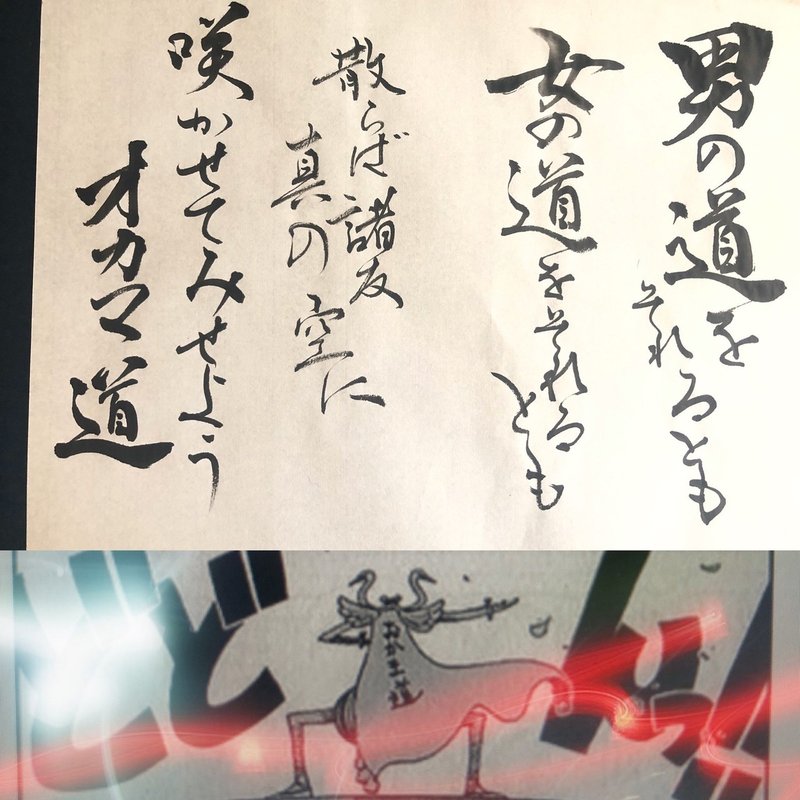 男の道をそれるとも
女の道をそれるとも
散らば諸友
真の空に
咲かせてみせよう
オカマ道
おかま道
ドドド